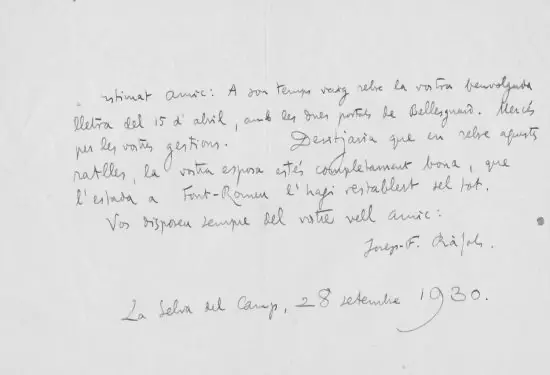 Estimat amic: A son temps vaig rebre la vostra benvolguda
lletra del 15 d'abril, amb les dues postals de Bellesguard. Mercés
per les vostres gestions. Desitjaria que en rebre aquestes
ratlles, la vostra esposa estés completament bona, que
l'estada a Font-Romeu l'hagi restablert del tot.
Vos disposeu sempre del vostre vell amic:
Josep-F. Ràfols.
La Selva del Camp, 28 setembre 1930.